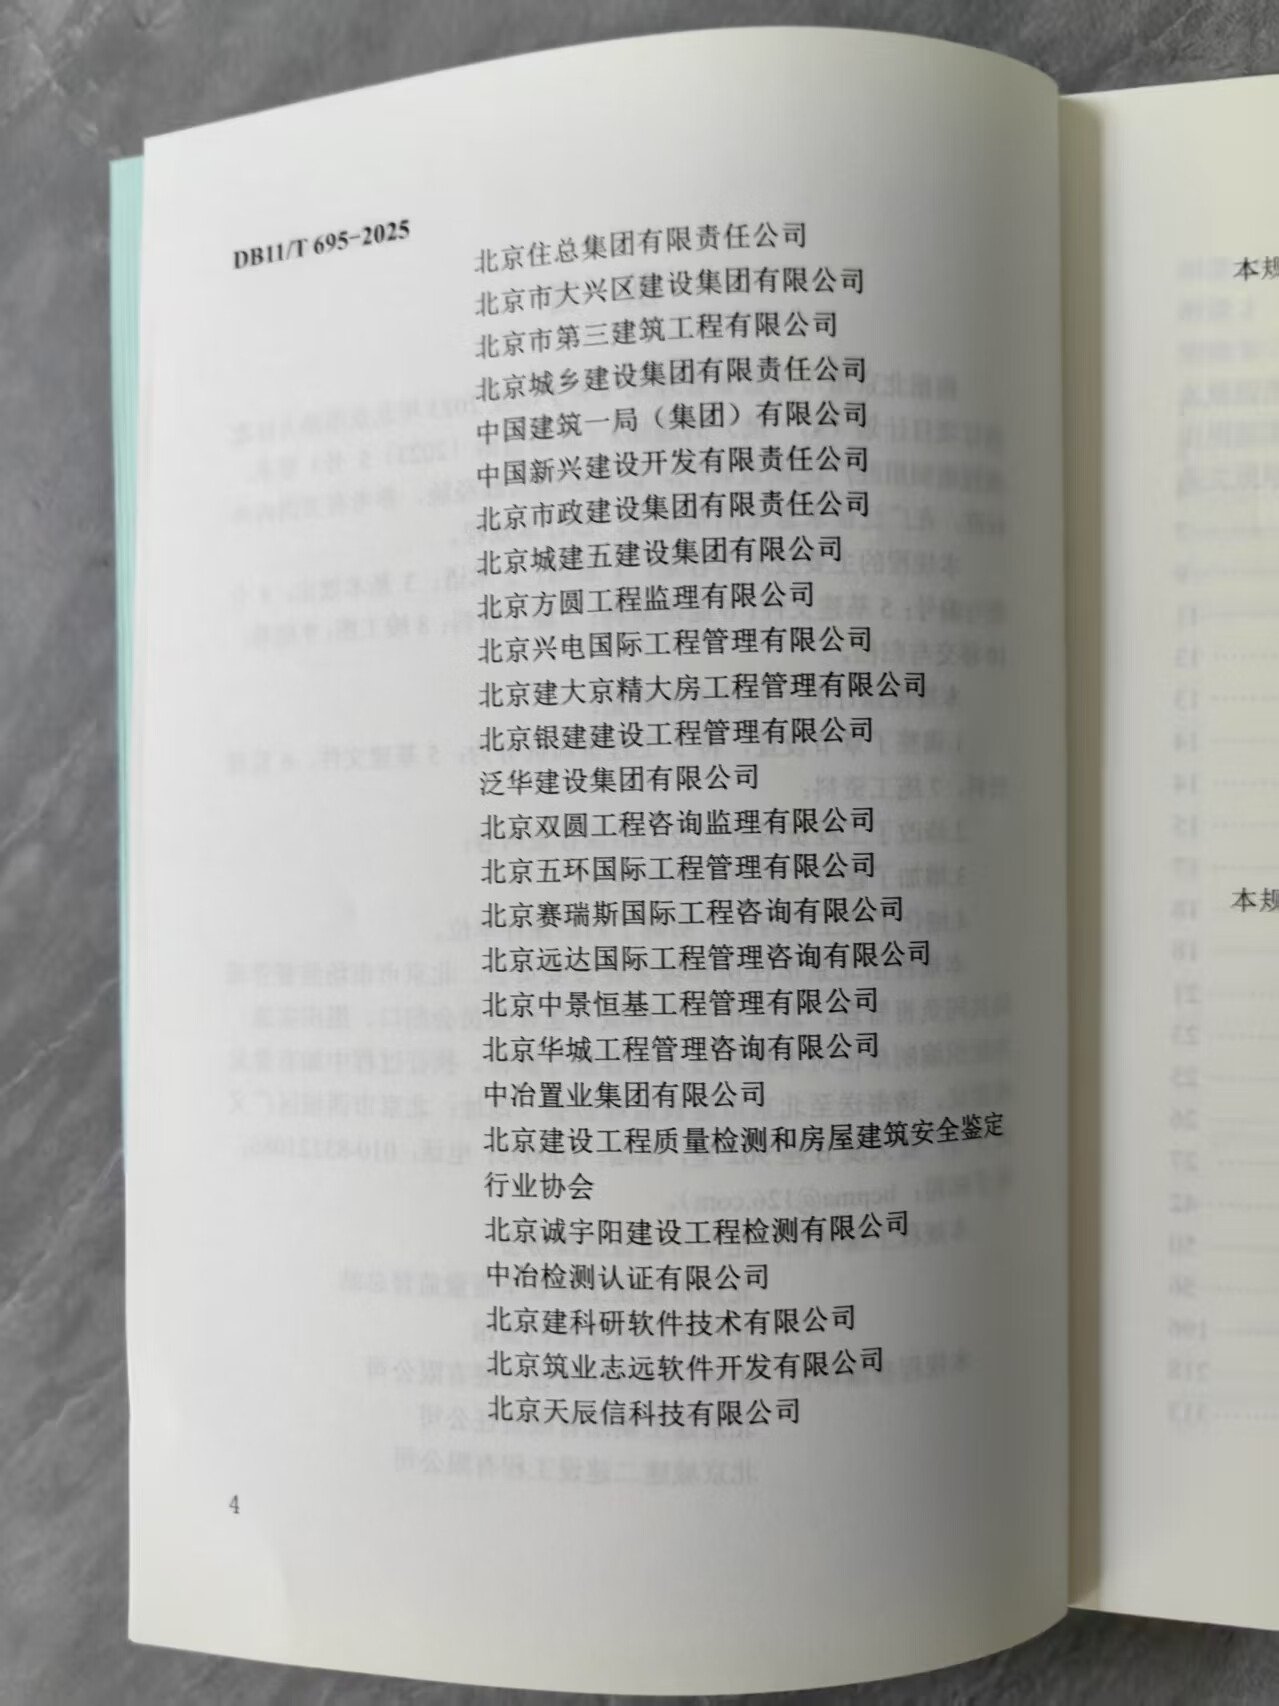 DB11/T 695-2025
北京住总集团有限责任公司
北京市大兴区建设集团有限公司
北京市第三建筑工程有限公司
北京城乡建设集团有限责任公司
中国建筑一局（集团）有限公司
中国新兴建设开发有限责任公司
北京市政建设集团有限责任公司
北京城建五建设集团有限公司
北京方圆工程监理有限公司
北京兴电国际工程管理有限公司
北京建大京精大房工程管理有限公司
北京银建建设工程管理有限公司
泛华建设集团有限公司
北京双圆工程咨询监理有限公司
北京五环国际工程管理有限公司
北京赛瑞斯国际工程咨询有限公司
北京远达国际工程管理咨询有限公司
北京中景恒基工程管理有限公司
北京华城工程管理咨询有限公司
中冶置业集团有限公司
北京建设工程质量检测和房屋建筑安全鉴定
行业协会
北京诚宇阳建设工程检测有限公司
中冶检测认证有限公司
北京建科研软件技术有限公司
北京筑业志远软件开发有限公司
北京天辰信科技有限公司
4
本规
本规